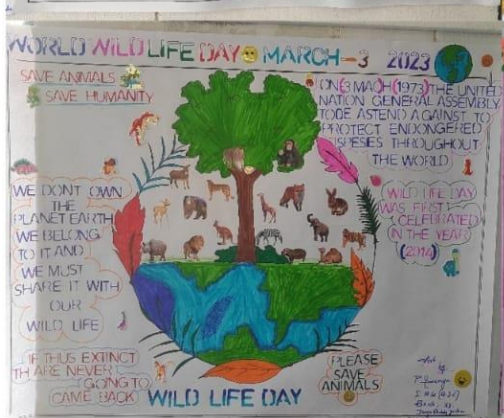 WORLD WILD LIFE DAY MARCH-3 2023
SAVE ANIMALS
SAVE HUMANITY
ON(3 MACH(1973)THE UNITED
NATION GENERAL ASSEMBLY
TODE ASTEND AGAINST TO
PROTECT ENDONGERED
SPESIES THROUGHOUT
THE WORLD
WE DONT OWN
THE
PLANET EARTH
WE BELONG
TO IT AND
WE MUST
SHARE IT WITH
OUR
WILD LIFE
WILD LIFE DAY
WAS FIRST
CELEBRATED
IN THE YEAR
(2014)
IF THUS EXTINCT
TH ARE NEVER
GOING TO
CAME BACK
WILD LIFE DAY
PLEASE
SAVE
ANIMALS